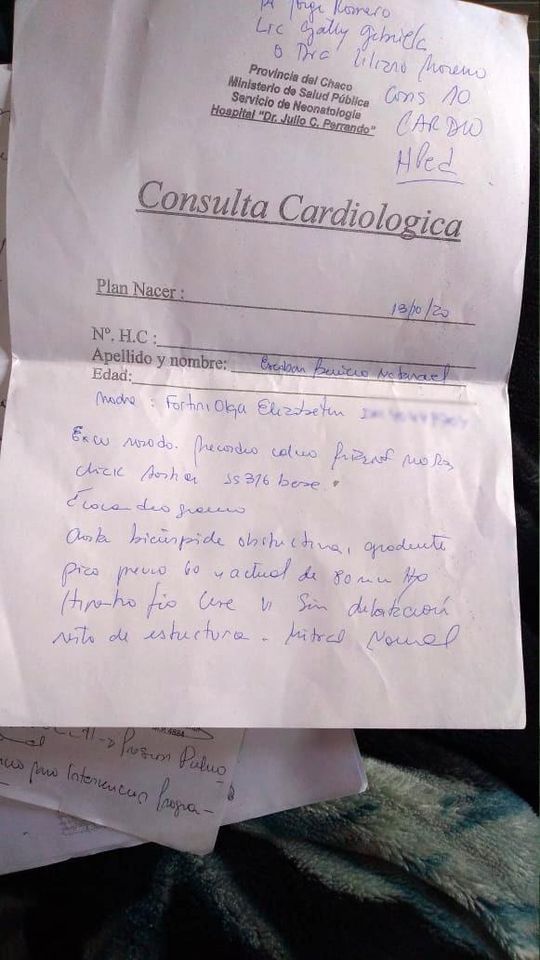 Dr Jorge Romero
Lic Gally Gabriela
o Dra Liliana Moreno
Cons 10
CARDIO
HPed
Provincia del Chaco
Ministerio de Salud Pública
Servicio de Neonatología
Hospital "Dr. Julio C. Perrando"
Consulta Cardiologica
Plan Nacer :
13/10/20
Nº. H.C :
Apellido y nombre: Esteban Benicio Natanael
Edad:
Madre : Fortini Olga Elizabeth
rosado. Precordio calmo
click Aortico SS 3/6 base.
Ecocardiograma
Aorta bicúspide obstructiva, gradente
pico previo 60 y actual de 80 mm Hg
Hipertrofia leve VI Sin dilatación
resto de estructura - Mitral Normal
Presion Pulmo